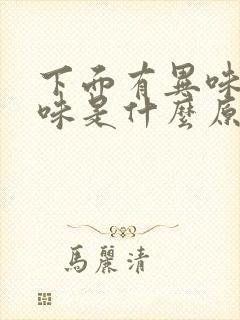 下面有異味
味是什麼原
馬麗清